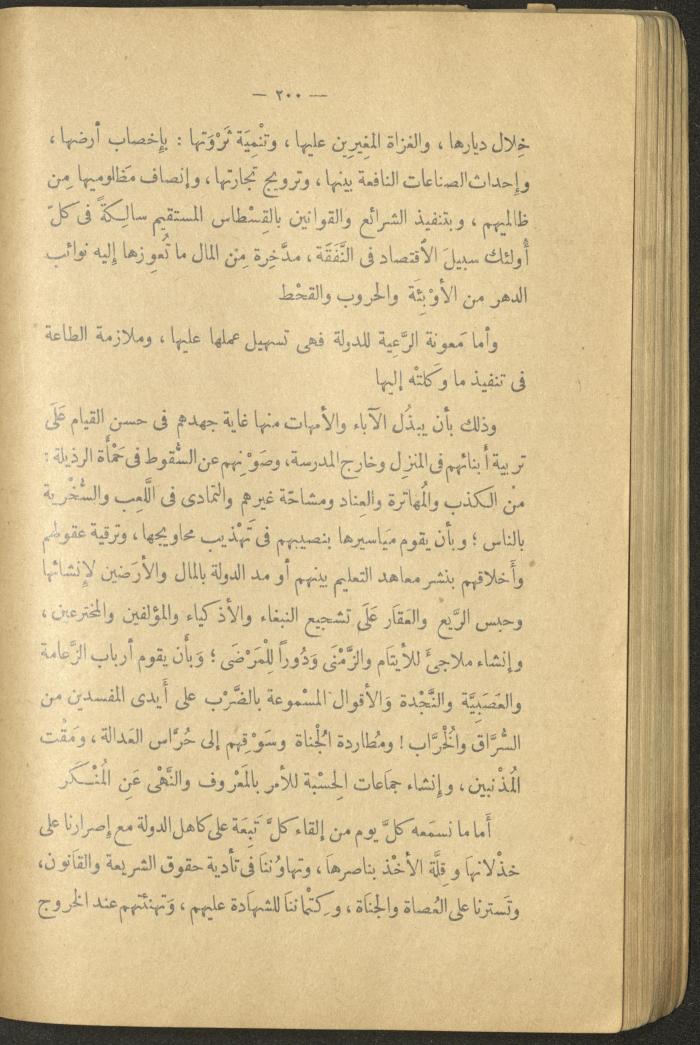 — ٢٠٠ —
خِلال ديارها ، والغزاة المغِيرِين عليها ، وتنْمِيَة ثَرْوَتها : بإِخصاب أرضها ،
وإحداث الصناعات النافعة بينها ، وترويج تجارتها ، وإنصاف مَظلوميها مِن
ظالميهم ، وبتنفيذ الشرائع والقوانين بالقِسْطاس المستقيم سالِكةً فى كلّ
أُولئك سبيلَ الاقتصاد فى النَّفَقَة ، مدَّخِرة مِن المال ما تُعوِزها إليه نوائب
الدهر من الأوْبِئَة والحروب والقحْط
وأما مَعونة الرَّعِية للدولة فهى تسهيل عملها عليها ، وملازمة الطاعة
فى تنفيذ ما وكَلتْه إليها
وذلك بأن يبذُل الآباء والأمهات منها غاية جهدهم فى حسن القيام عَلَى
تربية أَبنائهم فى المنزل وخارج المدرسة، وصَوْنِهم عن السُّقوط فى حَمْأَة الرذيلة :
منْ الكذب والمُهاترة والعِناد ومشاحّة غيرهم والتمادى فى اللَّعِب والسُّخْرية
بالناس ؛ وبأن يقوم مَيَاسيرها بنصيبهم فى تَهْذيب محاويجها ، وترقية عقولهم
وأخلاقهم بنشر معاهد التعليم بينهم أو مد الدولة بالمال والأَرَضين لإنشائها
وحبس الرَّيع والعَقَار عَلَى تشجيع النبغاء والأذكياء والمؤلفين والمخترعين ،
وإنشاء ملاجئَ للأيتَام والزَّمْنَى وَدُوراً لِلْمَرْضَى ؛ وَبأن يقوم أرباب الزَّعامة
والعَصَبِيَّة والنَّجْدة وَالأقوال المسْموعة بالضَّرْب على أَيدى المفسدين من
السُّرَّاق والْخُرَّاب ! ومُطاردة الْجُناة وسَوْقِهم إلى حُرَّاس العَدالة ، ومَقْت
المُذْنبين ، وإنشاء جمَاعات الحِسْبة للأمر بالمَعْروف والنَّهْى عَنِ الْمُنْكَر
أَما ما نسمَعه كلَّ يوم من إلقاء كلَّ تَبِعَة على كاهل الدولة مع إصرارنا على
خذْلانها وقِلَّة الأخْذ بناصرها ، وتهاوُننا فى تأدية حقوق الشريعة والقانون،
وتَسترنا على العُصاة والجناة ، وكِتْماننا للشهادة عليهم ، وَتهنئتهم عند الخروج